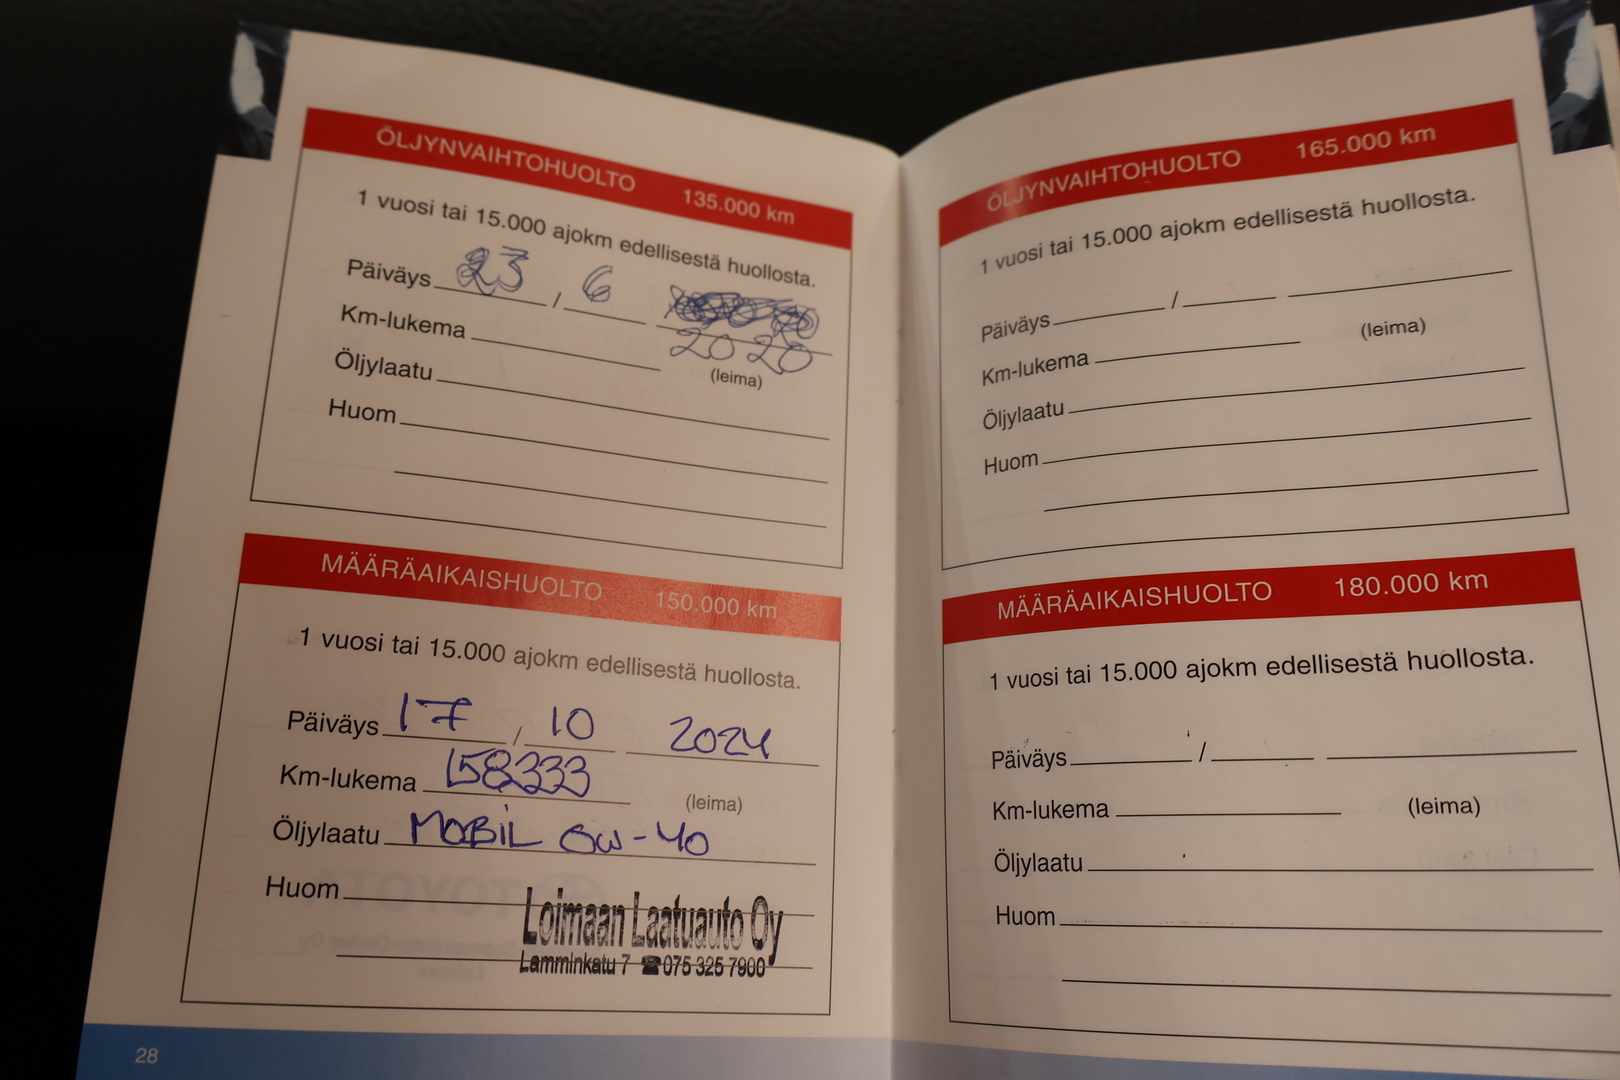 ÖLJYNVAIHTOHUOLTO 135.000 km
1 vuosi tai 15.000 ajokm edellisestä huollosta.
Päiväys 23 / 6
Km-lukema 2020
(leima)
Öljylaatu
Huom
MÄÄRÄAIKAISHUOLTO 150.000 km
1 vuosi tai 15.000 ajokm edellisestä huollosta.
Päiväys 17 / 10 2024
Km-lukema 158333 (leima)
Öljylaatu MOBIL 0W-40
Huom
Loimaan Laatuauto Oy
Lamminkatu 7 ☎075 325 7900
28
ÖLJYNVAIHTOHUOLTO 165.000 km
1 vuosi tai 15.000 ajokm edellisestä huollosta.
Päiväys /
Km-lukema (leima)
Öljylaatu
Huom
MÄÄRÄAIKAISHUOLTO 180.000 km
1 vuosi tai 15.000 ajokm edellisestä huollosta.
Päiväys /
Km-lukema (leima)
Öljylaatu
Huom